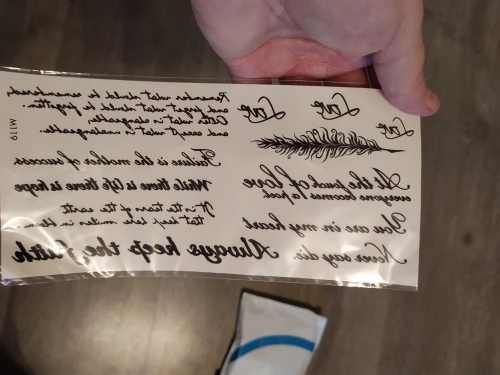 Remember what should be remembered,
and forget what should be forgotten.
Alter what is changeable,
and accept what is unchangeable.
M119
Love
Love
Love
Failure is the mother of success
While there is life there is hope
It is the tears of the earth
that keep her smiles in
At the touch of love
everyone becomes a poet
You are in my heart
Never say die.
Always keep the faith